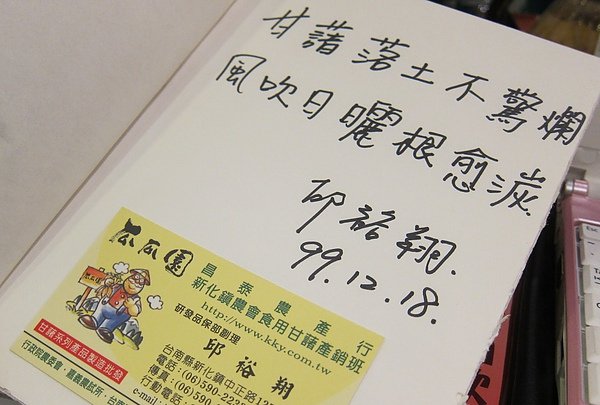 甘藷落土不驚爛
風吹日曬根愈湠
邱裕翔.
99.12.18.
瓜瓜園
昌泰農產行
新化鎮農會食用甘藷產銷班
http://www.kky.com.tw
研發品保部副理
邱裕翔
甘藷系列產品製造批發
行政院農委會．嘉義農試所．台南
台南縣新化鎮中正路
電話：(06)590-223
傳真：(06)590-2
行動電話
e-mail